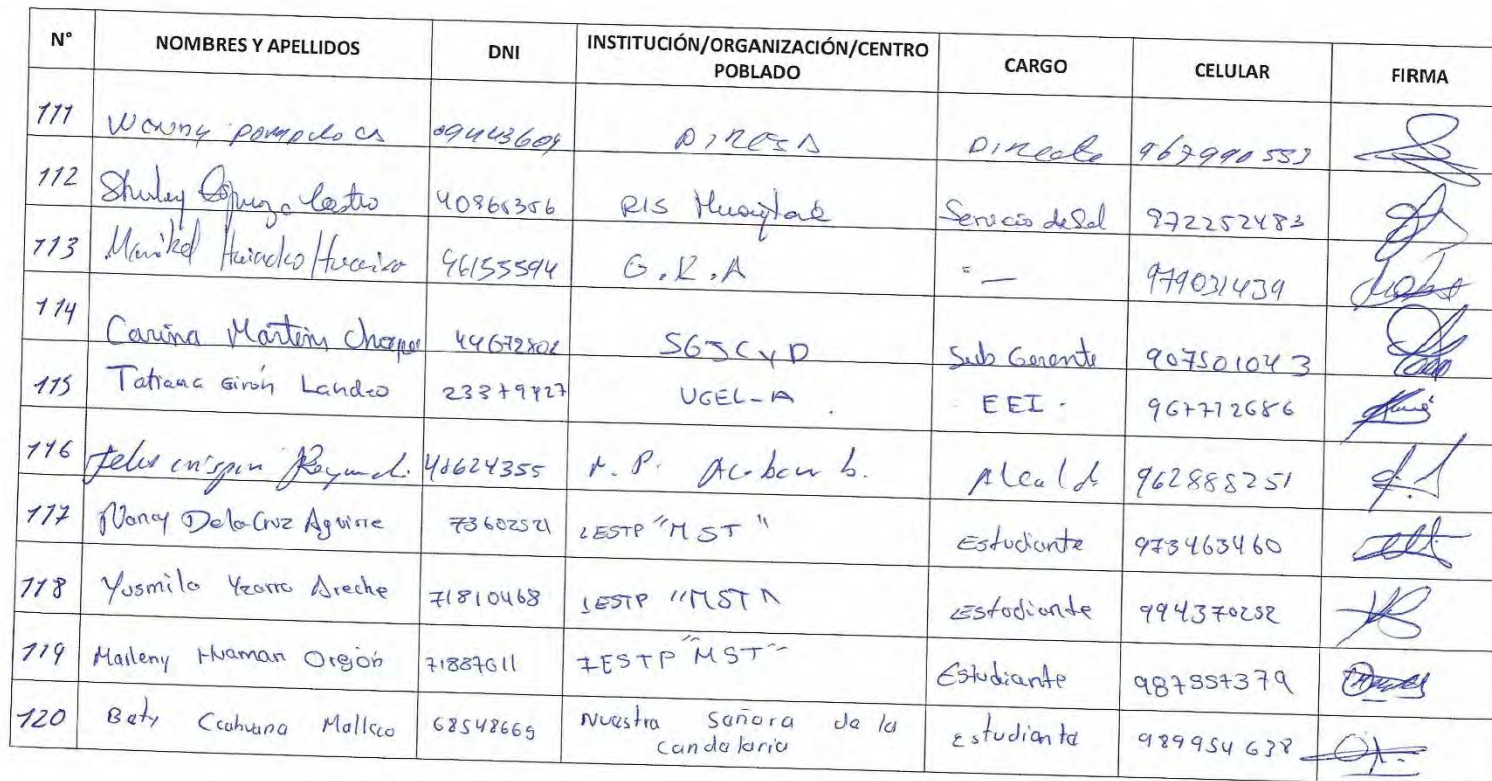 N° NOMBRES Y APELLIDOS DNI INSTITUCIÓN/ORGANIZACIÓN/CENTRO POBLADO CARGO CELULAR FIRMA
111 09443609 DIRESA 967990553
112 Shirley Castro 40865356 RIS Servicio de Sal 972252483
113 46155594 G.R.A — 979031439
114 Carina 44672802 SGJCyD Sub Gerente 907501043
115 Tatiana Girón Landeo 23379927 UGEL-A. EEI. 967712686
116 crispin 40624355 M.P. Alcald 962888251
117 Nancy De la Cruz Aguirre 73602521 IESTP "MST" Estudiante 973463460
118 Yusmila Yzarra Areche 71810468 IESTP "MST" Estudiante 994370252
119 Maileny Huaman Orejón 71887611 IESTP "MST" Estudiante 987557379
120 Bety Ccahuana Mallcco 68548669 Nuestra Señora de la Candelaria Estudiante 989954638